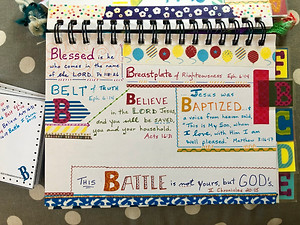 Blessed is he
who comes in the name
of the LORD. Ps. 118:26
Breastplate of Righteousness Eph. 6:14
BELT of TRUTH
Eph. 6:14
B
BELIEVE
in the LORD Jesus
and you will be SAVED,
you and your household.
Acts 16:31
Jesus was
BAPTIZED. &
a voice from heaven said,
"This is My Son, whom
I love; with Him I am
well pleased." Matthew 3:16-17
THIS BATTLE is not yours, but GOD's.
2 Chronicles 20:15
B
C
D
E
B